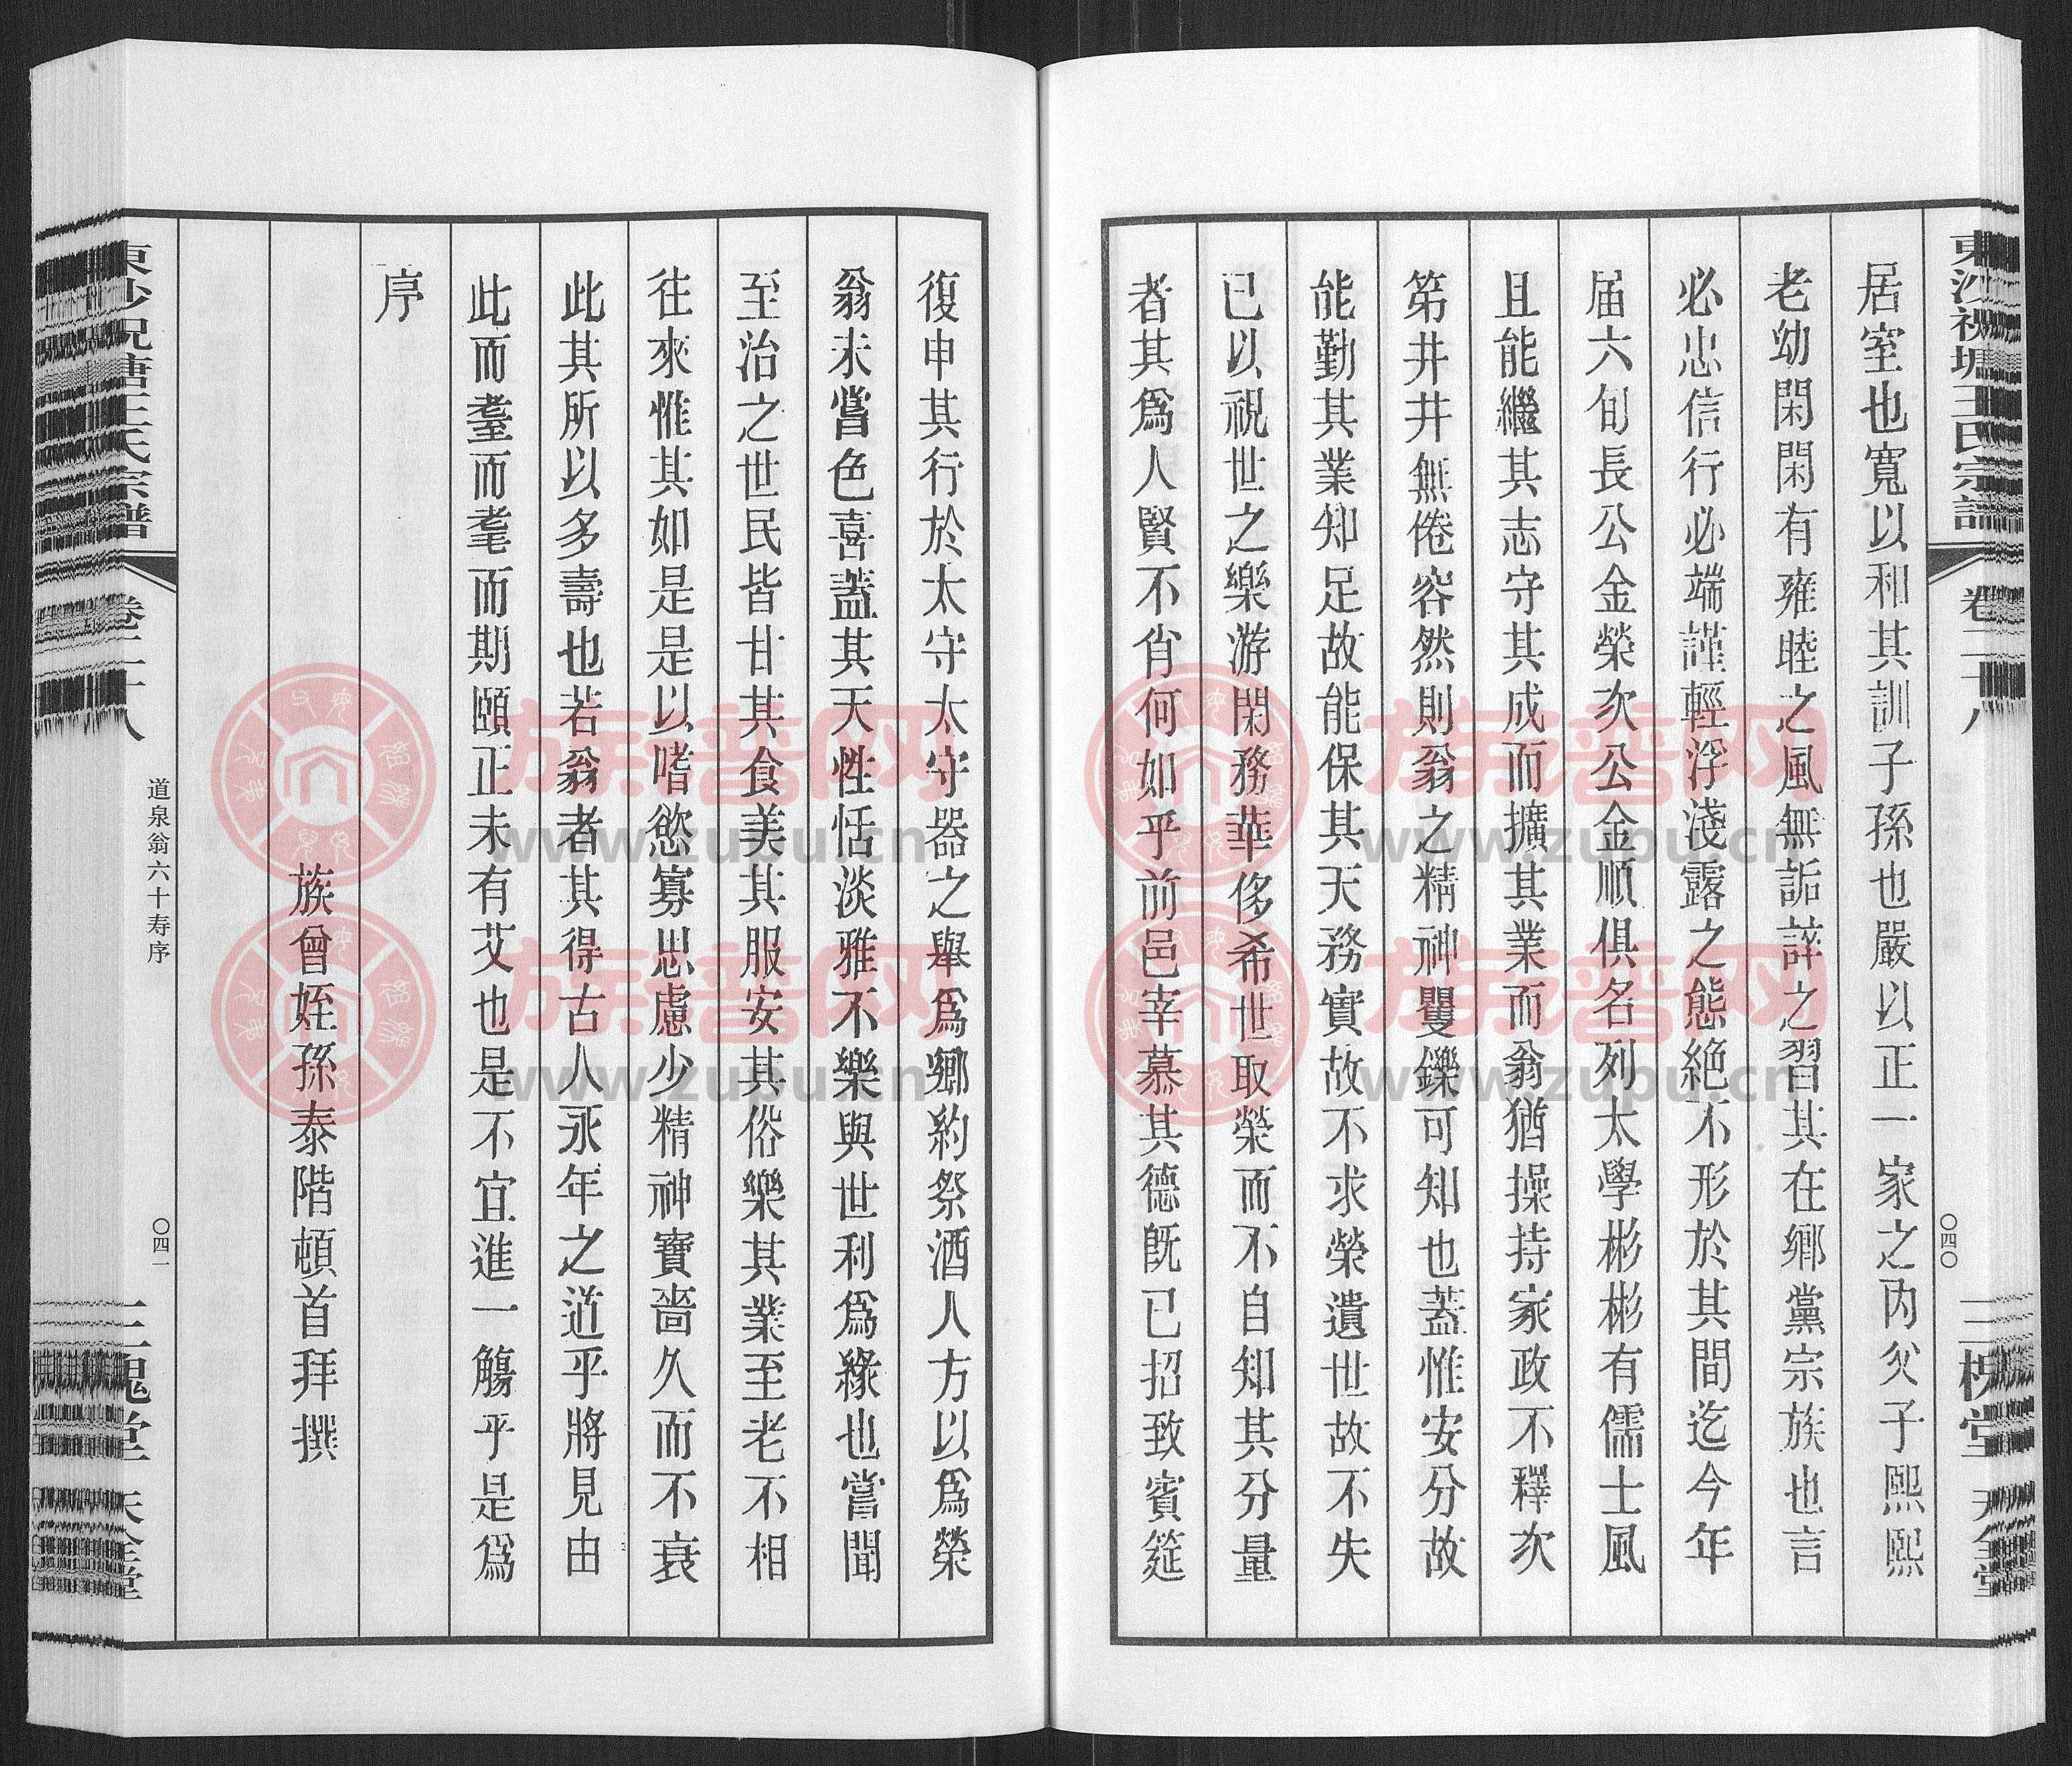 東沙祝塘王氏宗譜
卷二十八
〇四〇
三槐堂 天全堂
居室也寬以和其訓子孫也嚴以正一家之內父子熙熙
老幼閑閑有雍睦之風無詬誶之習其在鄉黨宗族也言
必忠信行必端謹輕浮淺露之態絕不形於其間迄今年
届六旬長公金榮次公金順俱名列太學彬彬有儒士風
且能繼其志守其成而擴其業而翁猶操持家政不釋次
第井井無倦容然則翁之精神矍鑠可知也蓋惟安分故
能勤其業知足故能保其天務實故不求榮遺世故不失
已以視世之樂游閑務華侈希世取榮而不自知其分量
者其爲人賢不肖何如乎前邑宰慕其德既已招致賓筵
復申其行於太守太守器之舉爲鄉約祭酒人方以爲榮
翁未嘗色喜蓋其天性恬淡雅不樂與世利爲緣也嘗聞
至治之世民皆甘其食美其服安其俗樂其業至老不相
往來惟其如是是以嗜慾寡思慮少精神寶嗇久而不衰
此其所以多壽也若翁者其得古人永年之道乎將見由
此而耋而耄而期頤正未有艾也是不宜進一觴乎是爲
序
族曾姪孫泰階頓首拜撰
東沙祝塘王氏宗譜
卷二十八
道泉翁六十寿序
〇四一
三槐堂 天全堂
族譜网
www.zupu.cn
族譜网
www.zupu.cn
族譜网
www.zupu.cn
族譜网
www.zupu.cn